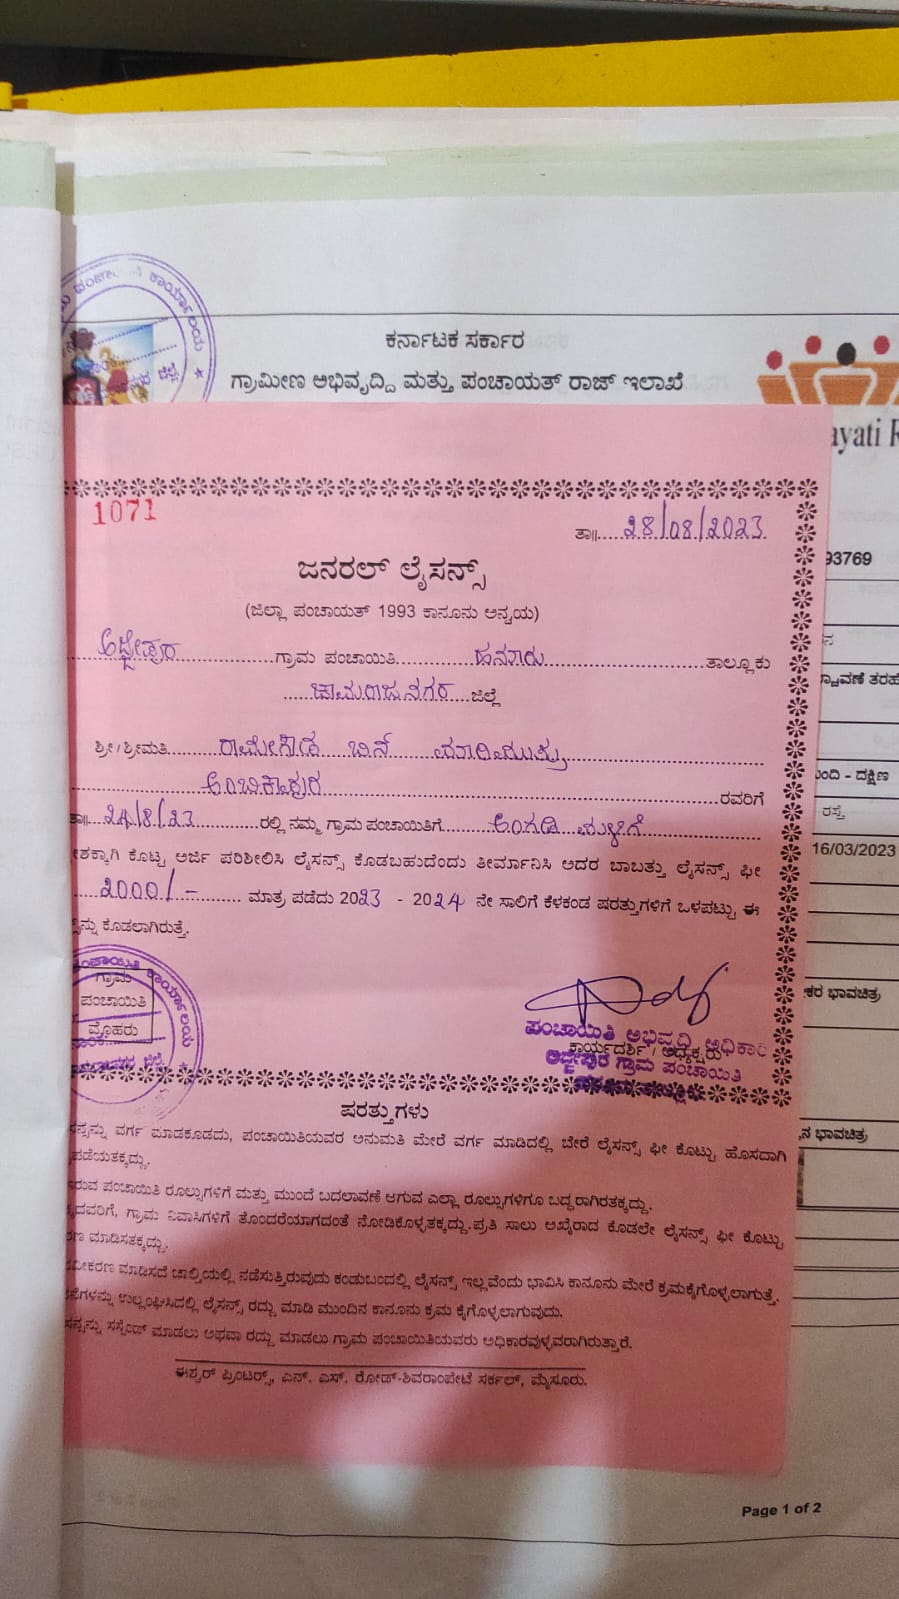 ಕಾರ್ಯಾಲಯ
ಕರ್ನಾಟಕ ಸರ್ಕಾರ
ಗ್ರಾಮೀಣ ಅಭಿವೃದ್ದಿ ಮತ್ತು ಪಂಚಾಯತ್ ರಾಜ್ ಇಲಾಖೆ
ayati R
1071
ತಾ॥....28/08/2023
93769
ಜನರಲ್ ಲೈಸನ್ಸ್
(ಜಿಲ್ಲಾ ಪಂಚಾಯತ್ 1993 ಕಾನೂನು ಅನ್ವಯ)
ಅಜ್ಜೀಪುರ ಗ್ರಾಮ ಪಂಚಾಯಿತಿ ಹನೂರು ತಾಲ್ಲೂಕು
ಚಾಮರಾಜನಗರ ಜಿಲ್ಲೆ
ಶ್ರೀ/ಶ್ರೀಮತಿ ರಾಮೇಗೌಡ ಬಿನ್ ಮಾರಿಮುತ್ತು
ಅಂಬಿಕಾಪುರ ರವರಿಗೆ
ತಾ॥ 24/8/23 ರಲ್ಲಿ ನಮ್ಮ ಗ್ರಾಮ ಪಂಚಾಯಿತಿಗೆ ಅಂಗಡಿ ಮಳಿಗೆ
ಕ್ಕಾಗಿ ಕೊಟ್ಟ ಅರ್ಜಿ ಪರಿಶೀಲಿಸಿ ಲೈಸನ್ಸ್ ಕೊಡಬಹುದೆಂದು ತೀರ್ಮಾನಿಸಿ ಅದರ ಬಾಬತ್ತು ಲೈಸನ್ಸ್ ಫೀ
2000/- ಮಾತ್ರ ಪಡೆದು 2023 - 2024 ನೇ ಸಾಲಿಗೆ ಕೆಳಕಂಡ ಷರತ್ತುಗಳಿಗೆ ಒಳಪಟ್ಟು ಈ
ನ್ನು ಕೊಡಲಾಗಿರುತ್ತೆ.
ಾವಣೆ ತರಹೆ
ಂದಿ - ದಕ್ಷಿಣ
ರಸ್ತೆ
16/03/2023
ಕರ ಭಾವಚಿತ್ರ
ಕಾರ್ಯಾಲಯ
ಗ್ರಾಮ
ಪಂಚಾಯಿತಿ
ಮೊಹರು
ಪಂಚಾಯಿತಿ ಅಭಿವೃದ್ಧಿ ಅಧಿಕಾರಿ
ಕಾರ್ಯದರ್ಶಿ / ಅಧ್ಯಕ್ಷರು
ಅಜ್ಜೀಪುರ ಗ್ರಾಮ ಪಂಚಾಯಿತಿ
ಷರತ್ತುಗಳು
ನ್ನು ವರ್ಗ ಮಾಡಕೂಡದು, ಪಂಚಾಯಿತಿಯವರ ಅನುಮತಿ ಮೇರೆ ವರ್ಗ ಮಾಡಿದಲ್ಲಿ ಬೇರೆ ಲೈಸನ್ಸ್ ಫೀ ಕೊಟ್ಟು ಹೊಸದಾಗಿ
ಪಡೆಯತಕ್ಕದ್ದು.
ನ ಭಾವಚಿತ್ರ
ಇರುವ ಪಂಚಾಯಿತಿ ರೂಲ್ಸುಗಳಿಗೆ ಮತ್ತು ಮುಂದೆ ಬದಲಾವಣೆ ಆಗುವ ಎಲ್ಲಾ ರೂಲ್ಸುಗಳಿಗೂ ಬದ್ಧರಾಗಿರತಕ್ಕದ್ದು.
ದವರಿಗೆ, ಗ್ರಾಮ ನಿವಾಸಿಗಳಿಗೆ ತೊಂದರೆಯಾಗದಂತೆ ನೋಡಿಕೊಳ್ಳತಕ್ಕದ್ದು. ಪ್ರತಿ ಸಾಲು ಅಖೈರಾದ ಕೊಡಲೇ ಲೈಸನ್ಸ್ ಫೀ ಕೊಟ್ಟು
ಣ ಮಾಡಿಸತಕ್ಕದ್ದು.
ವೀಕರಣ ಮಾಡಿಸದೆ ಚಾಲ್ತಿಯಲ್ಲಿ ನಡೆಸುತ್ತಿರುವುದು ಕಂಡುಬಂದಲ್ಲಿ ಲೈಸೆನ್ಸ್ ಇಲ್ಲವೆಂದು ಭಾವಿಸಿ ಕಾನೂನು ಮೇರೆ ಕ್ರಮಕೈಗೊಳ್ಳಲಾಗುತ್ತೆ.
ಗಳನ್ನು ಉಲ್ಲಂಘಿಸಿದಲ್ಲಿ ಲೈಸೆನ್ಸ್ ರದ್ದು ಮಾಡಿ ಮುಂದಿನ ಕಾನೂನು ಕ್ರಮ ಕೈಗೊಳ್ಳಲಾಗುವುದು.
ನ್ನು ಸಸ್ಪೆಂಡ್ ಮಾಡಲು ಅಥವಾ ರದ್ದು ಮಾಡಲು ಗ್ರಾಮ ಪಂಚಾಯಿತಿಯವರು ಅಧಿಕಾರವುಳ್ಳವರಾಗಿರುತ್ತಾರೆ.
ಈಶ್ವರ್ ಪ್ರಿಂಟರ್‍ಸ್, ಎನ್. ಎಸ್. ರೋಡ್-ಶಿವರಾಂಪೇಟೆ ಸರ್ಕಲ್, ಮೈಸೂರು.
Page 1 of 2